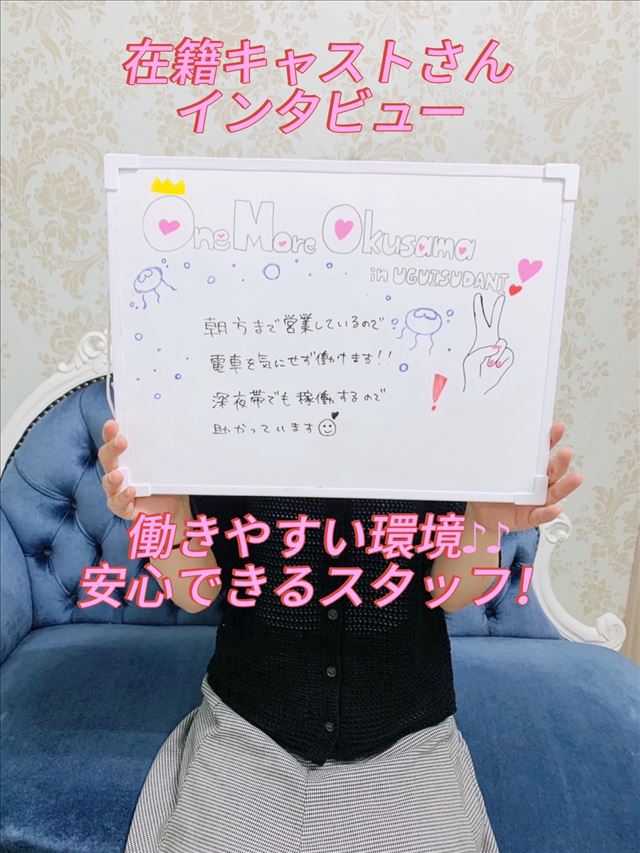 在籍キャストさん
インタビュー
One More Okusama
in UGUISUDANI
朝方まで営業しているので
電車を気にせず働けます!!
深夜帯でも稼働するので
助かっています
働きやすい環境♪♪
安心できるスタッフ!